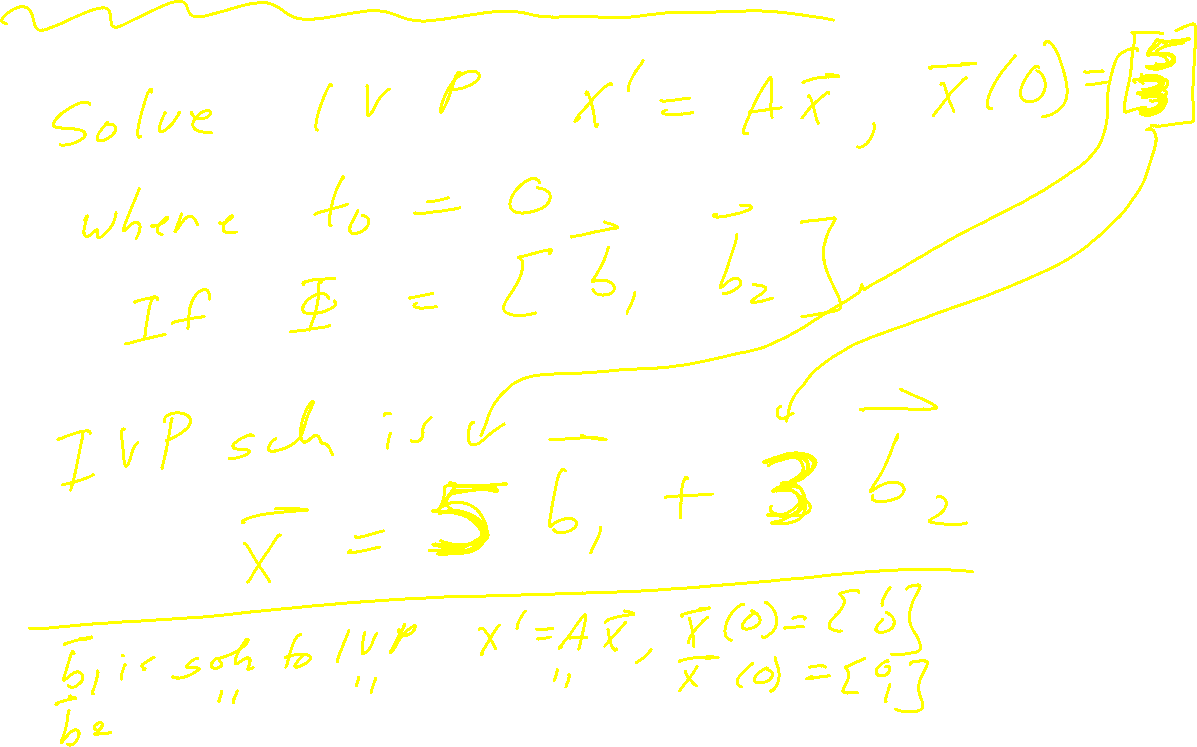 Solve IVP x' = Ax̄, x̄(0) = [5 3]
where t₀ = 0
If Φ = [b⃗₁ b⃗₂]
IVP soln is
x̄ = 5 b̄₁ + 3 b⃗₂
b̄₁ is soln to IVP x' = Ax⃗, x̄(0) = [1 0]
b̄₂ " " " x̄(0) = [0 1]